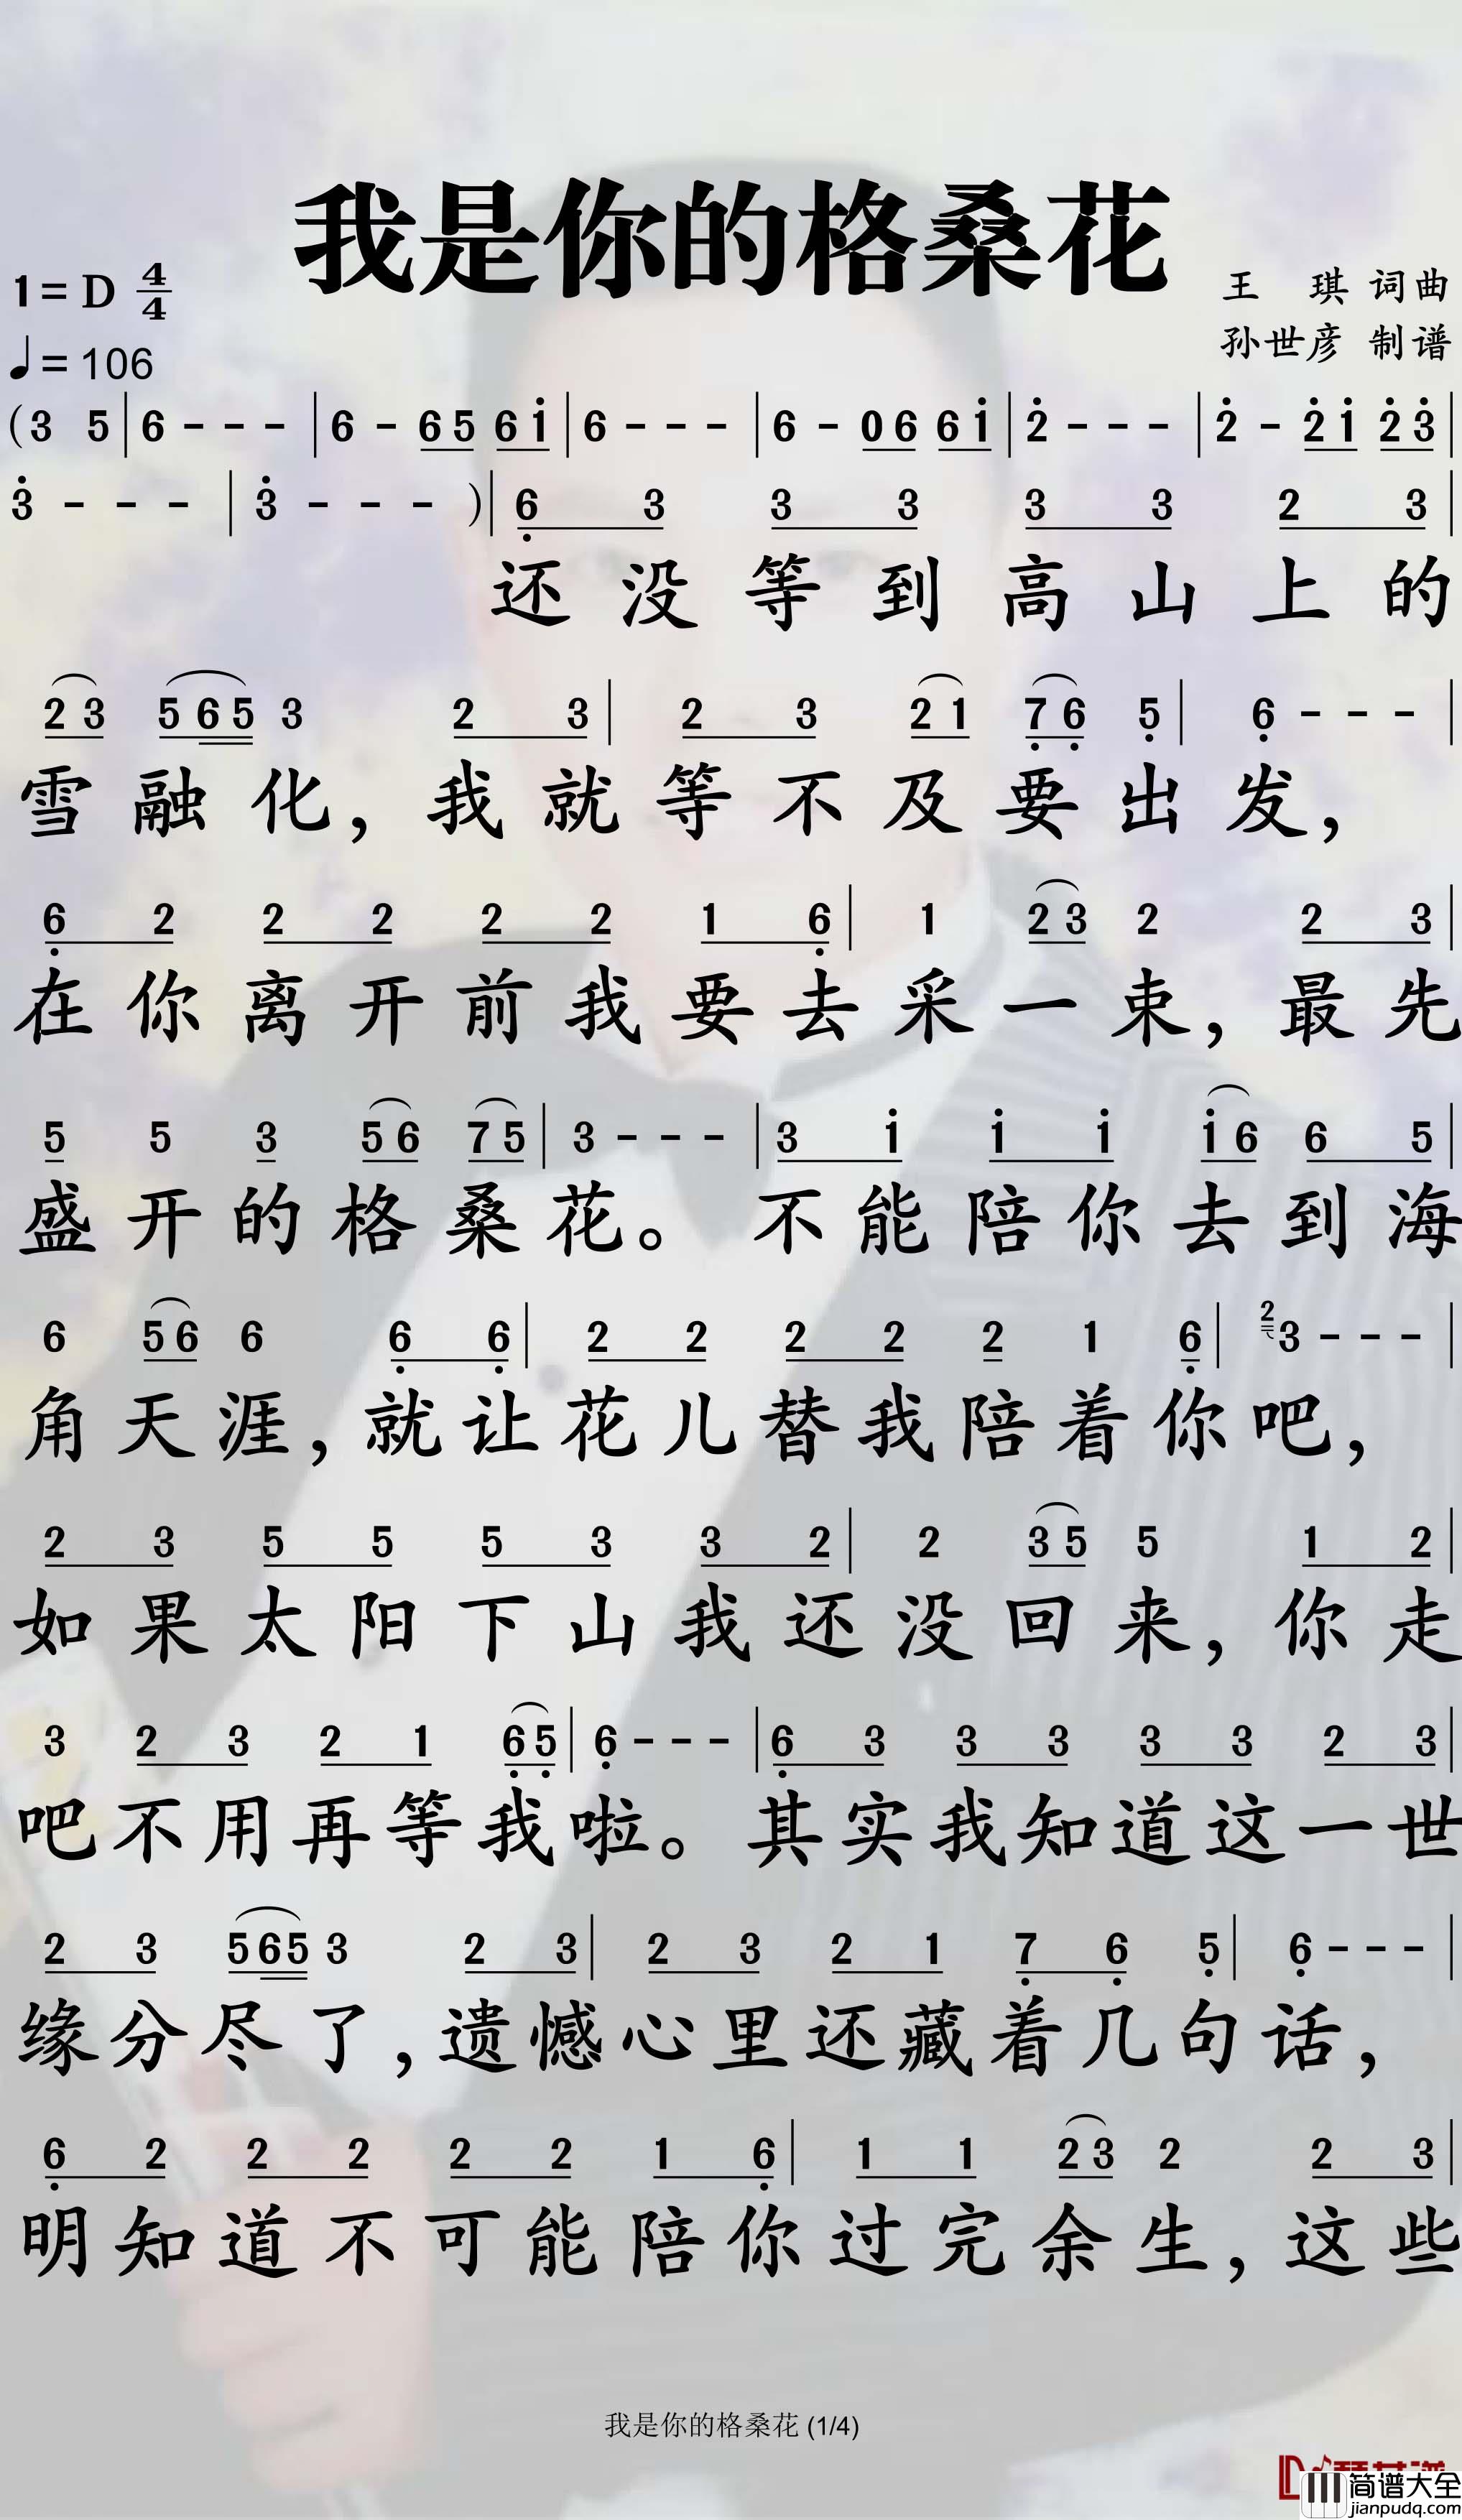 我是你的格桑花
1=D 4/4
王 琪 词曲
孙世彦 制谱
♩=106
(3 5|6 - - -|6 - 6 5 6 i|6 - - -|6 - 0 6 6 i|2̇ - - -|2̇ - 2̇ i 2̇ 3̇|
3̇ - - -|3̇ - - -)|6̣ 3 3 3 3 3 2 3|
还没等到高山上的
2 3 5 6 5 3 2 3|2 3 2 1 7̣ 6̣ 5̣|6̣ - - -|
雪融化，我就等不及要出发，
6̣ 2 2 2 2 2 1 6̣|1 2 3 2 2 3|
在你离开前我要去采一束，最先
5 5 3 5 6 7 5|3 - - -|3 i i i i 6 6 5|
盛开的格桑花。不能陪你去到海
6 5 6 6 6̣ 6̣|2 2 2 2 2 1 6̣|2 3 - - -|
角天涯，就让花儿替我陪着你吧，
2 3 5 5 5 3 3 2|2 3 5 5 1 2|
如果太阳下山我还没回来，你走
3 2 3 2 1 6̣ 5̣|6̣ - - -|6̣ 3 3 3 3 3 2 3|
吧不用再等我啦。其实我知道这一世
2 3 5 6 5 3 2 3|2 3 2 1 7̣ 6̣ 5̣|6̣ - - -|
缘分尽了，遗憾心里还藏着几句话，
6̣ 2 2 2 2 2 1 6̣|1 1 2 3 2 2 3|
明知道不可能陪你过完余生，这些
我是你的格桑花 (1/4)
简谱大全
jianpudq.com